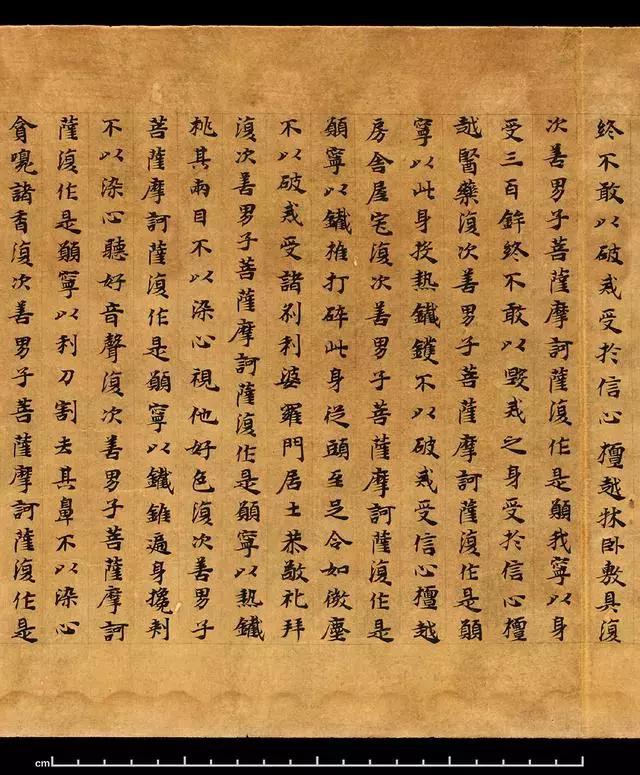 終不敢以破戒受於信心檀越牀卧敷具復
次善男子菩薩摩訶薩復作是願我寧以身
受三百鉾終不敢以毀戒之身受於信心檀
越醫藥復次善男子菩薩摩訶薩復作是願
寧以此身投熱鐵鑊不以破戒受信心檀越
房舍屋宅復次善男子菩薩摩訶薩復作是
願寧以鐵椎打碎此身從頭至足令如微塵
不以破戒受諸刹利婆羅門居士恭敬礼拜
復次善男子菩薩摩訶薩復作是願寧以熱鐵
桃其兩目不以染心視他好色復次善男子
菩薩摩訶薩復作是願寧以鐵錐遍身攙刺
不以染心聽好音聲復次善男子菩薩摩訶
薩復作是願寧以利刀割去其鼻不以染心
貪嗅諸香復次善男子菩薩摩訶薩復作是
cm